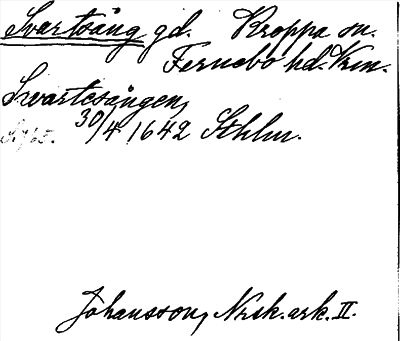 Svartsång gd. Kroppa sn.
Fernebo hd. Vrm.
Svartesången,
30/4 1642 Sthlm.
Johansson, Norsk. ark. II.